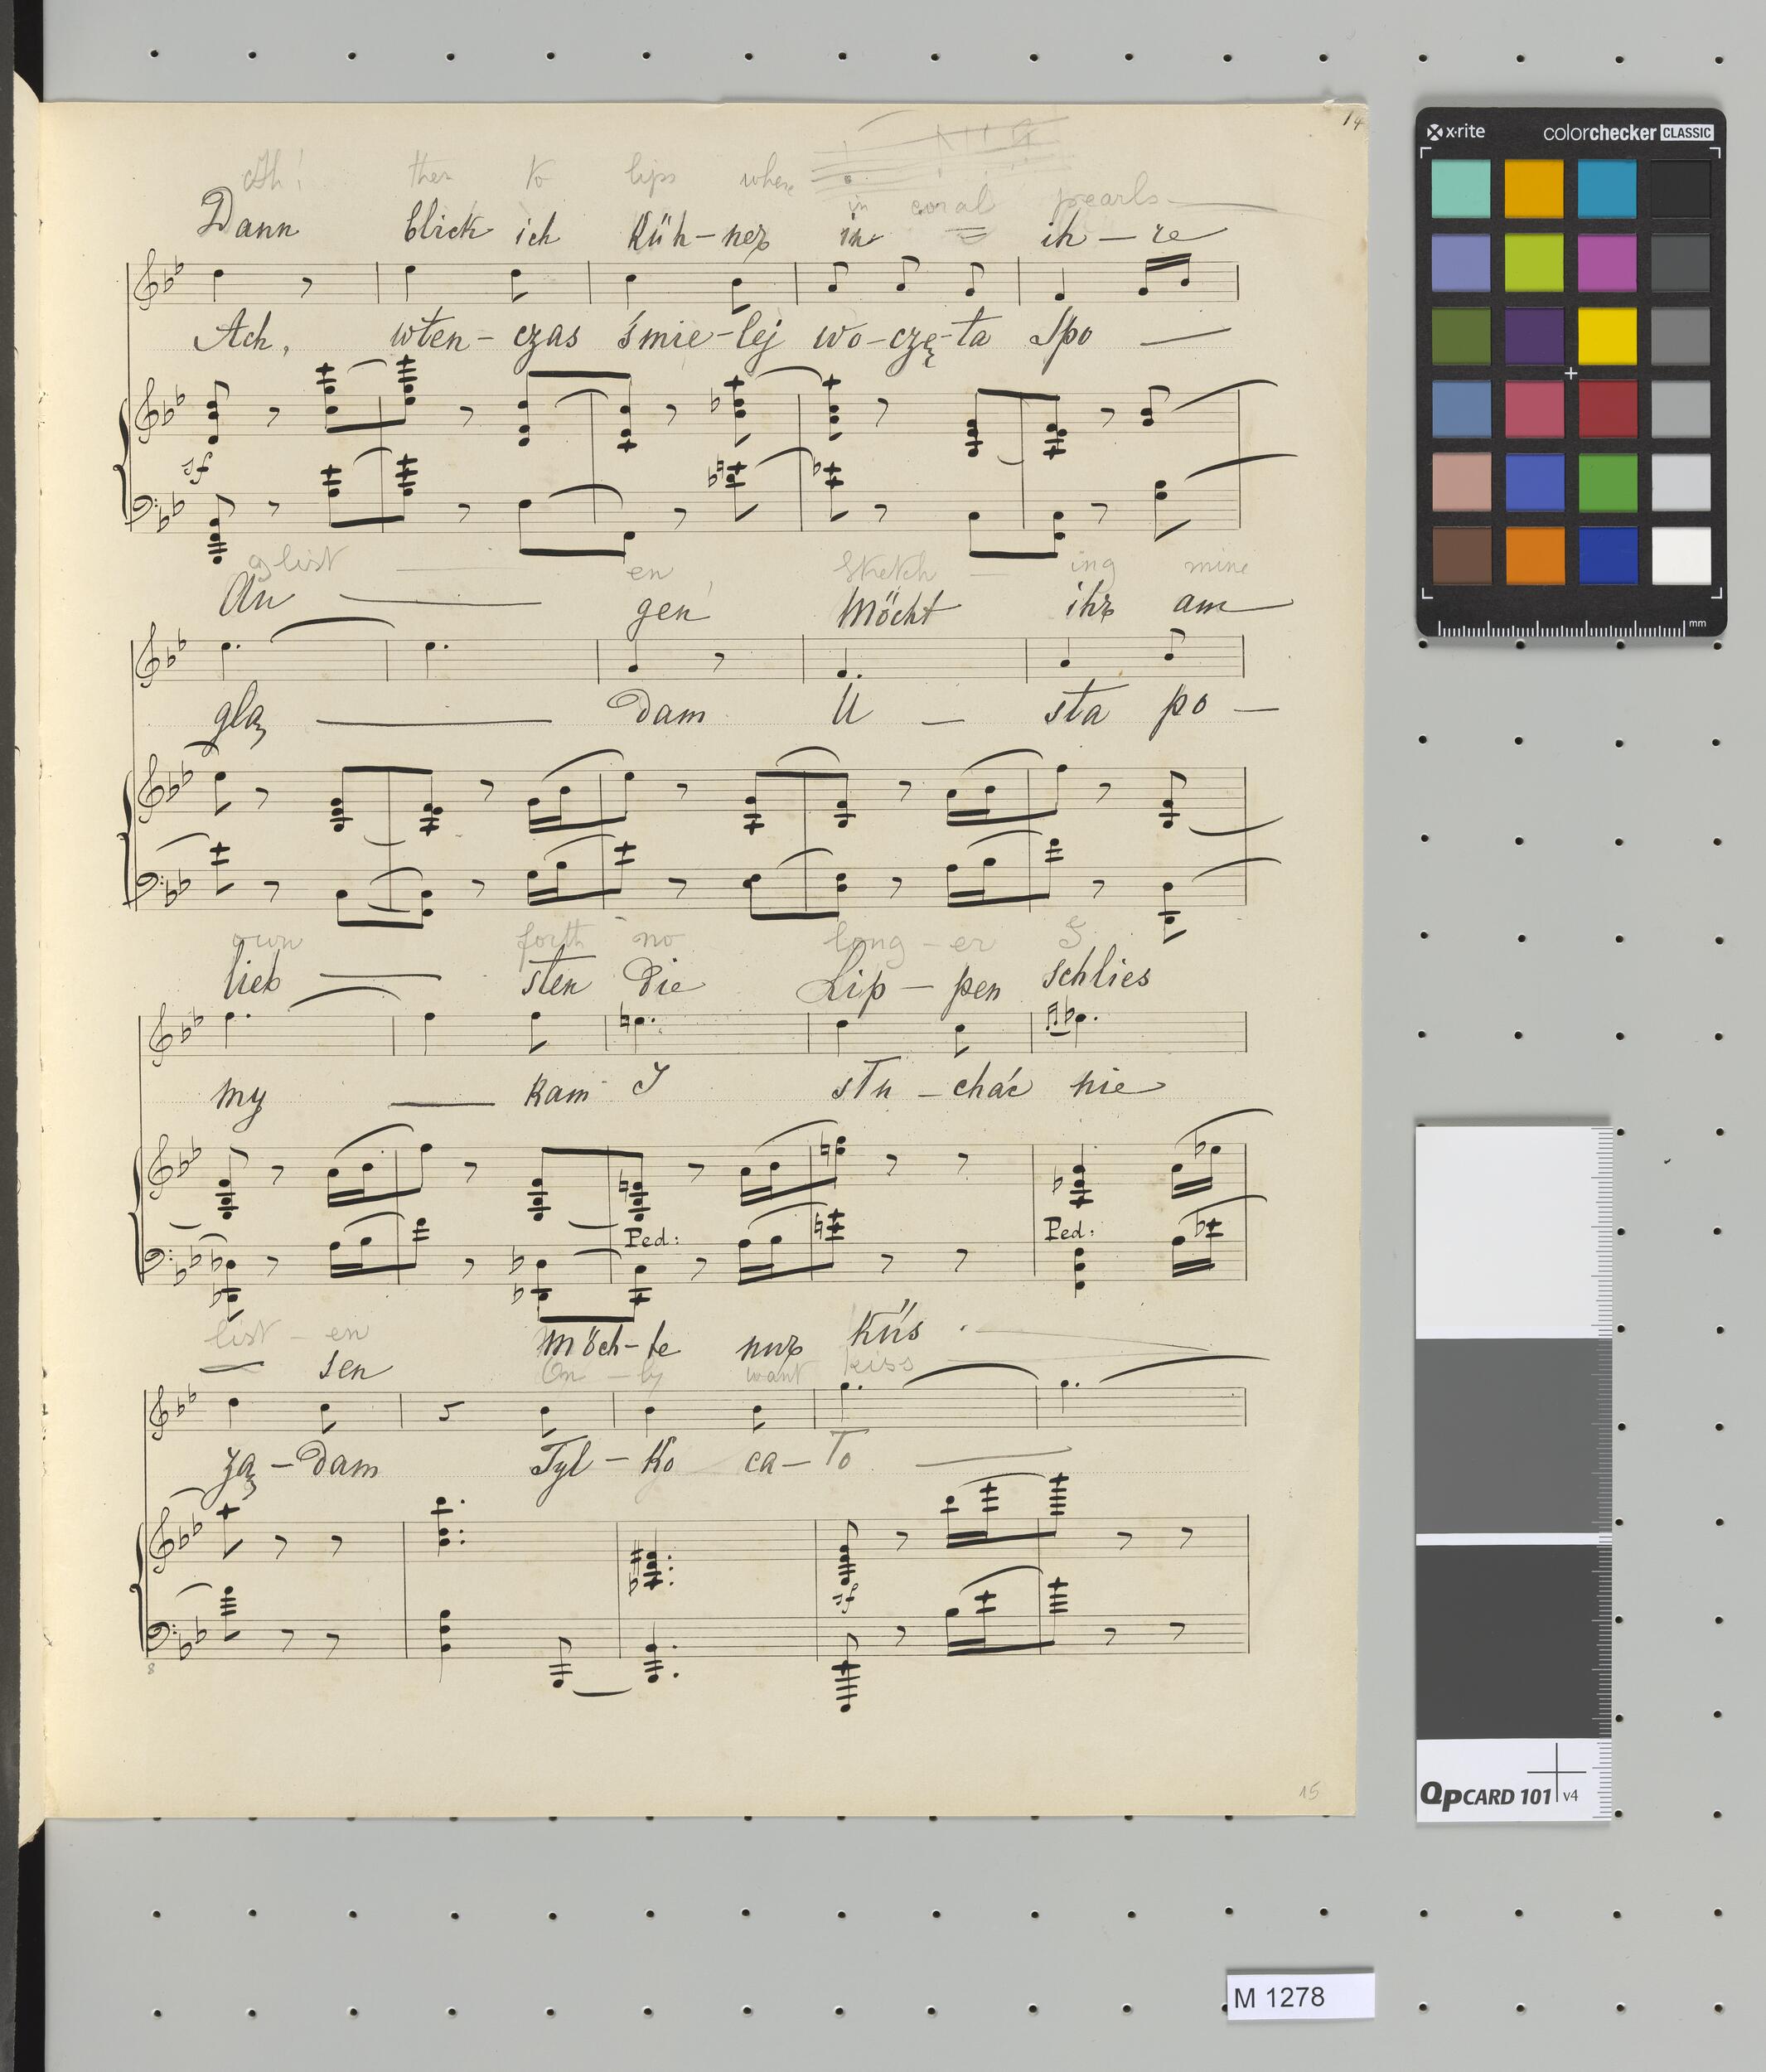 14
Ah! then to lips where
in coral pearls
Dann blick ich küh-ner in ih-re
Ach, wten-czas śmie-lej wo-czę-ta Spo
sf
glist en stretch - ing mine
Au gen Möcht ihr am
glą Dam U - sta po -
own forth no long-er I
lieb sten Die Lip-pen schlies
my kam I słu-chać nie
Ped: Ped:
list-en
sen möch-te nur küs
On-ly want kiss
żą-Dam Tyl-ko ca-ło
sf
8
15
x·rite colorchecker CLASSIC
mm
QPCARD 101 v4
M 1278